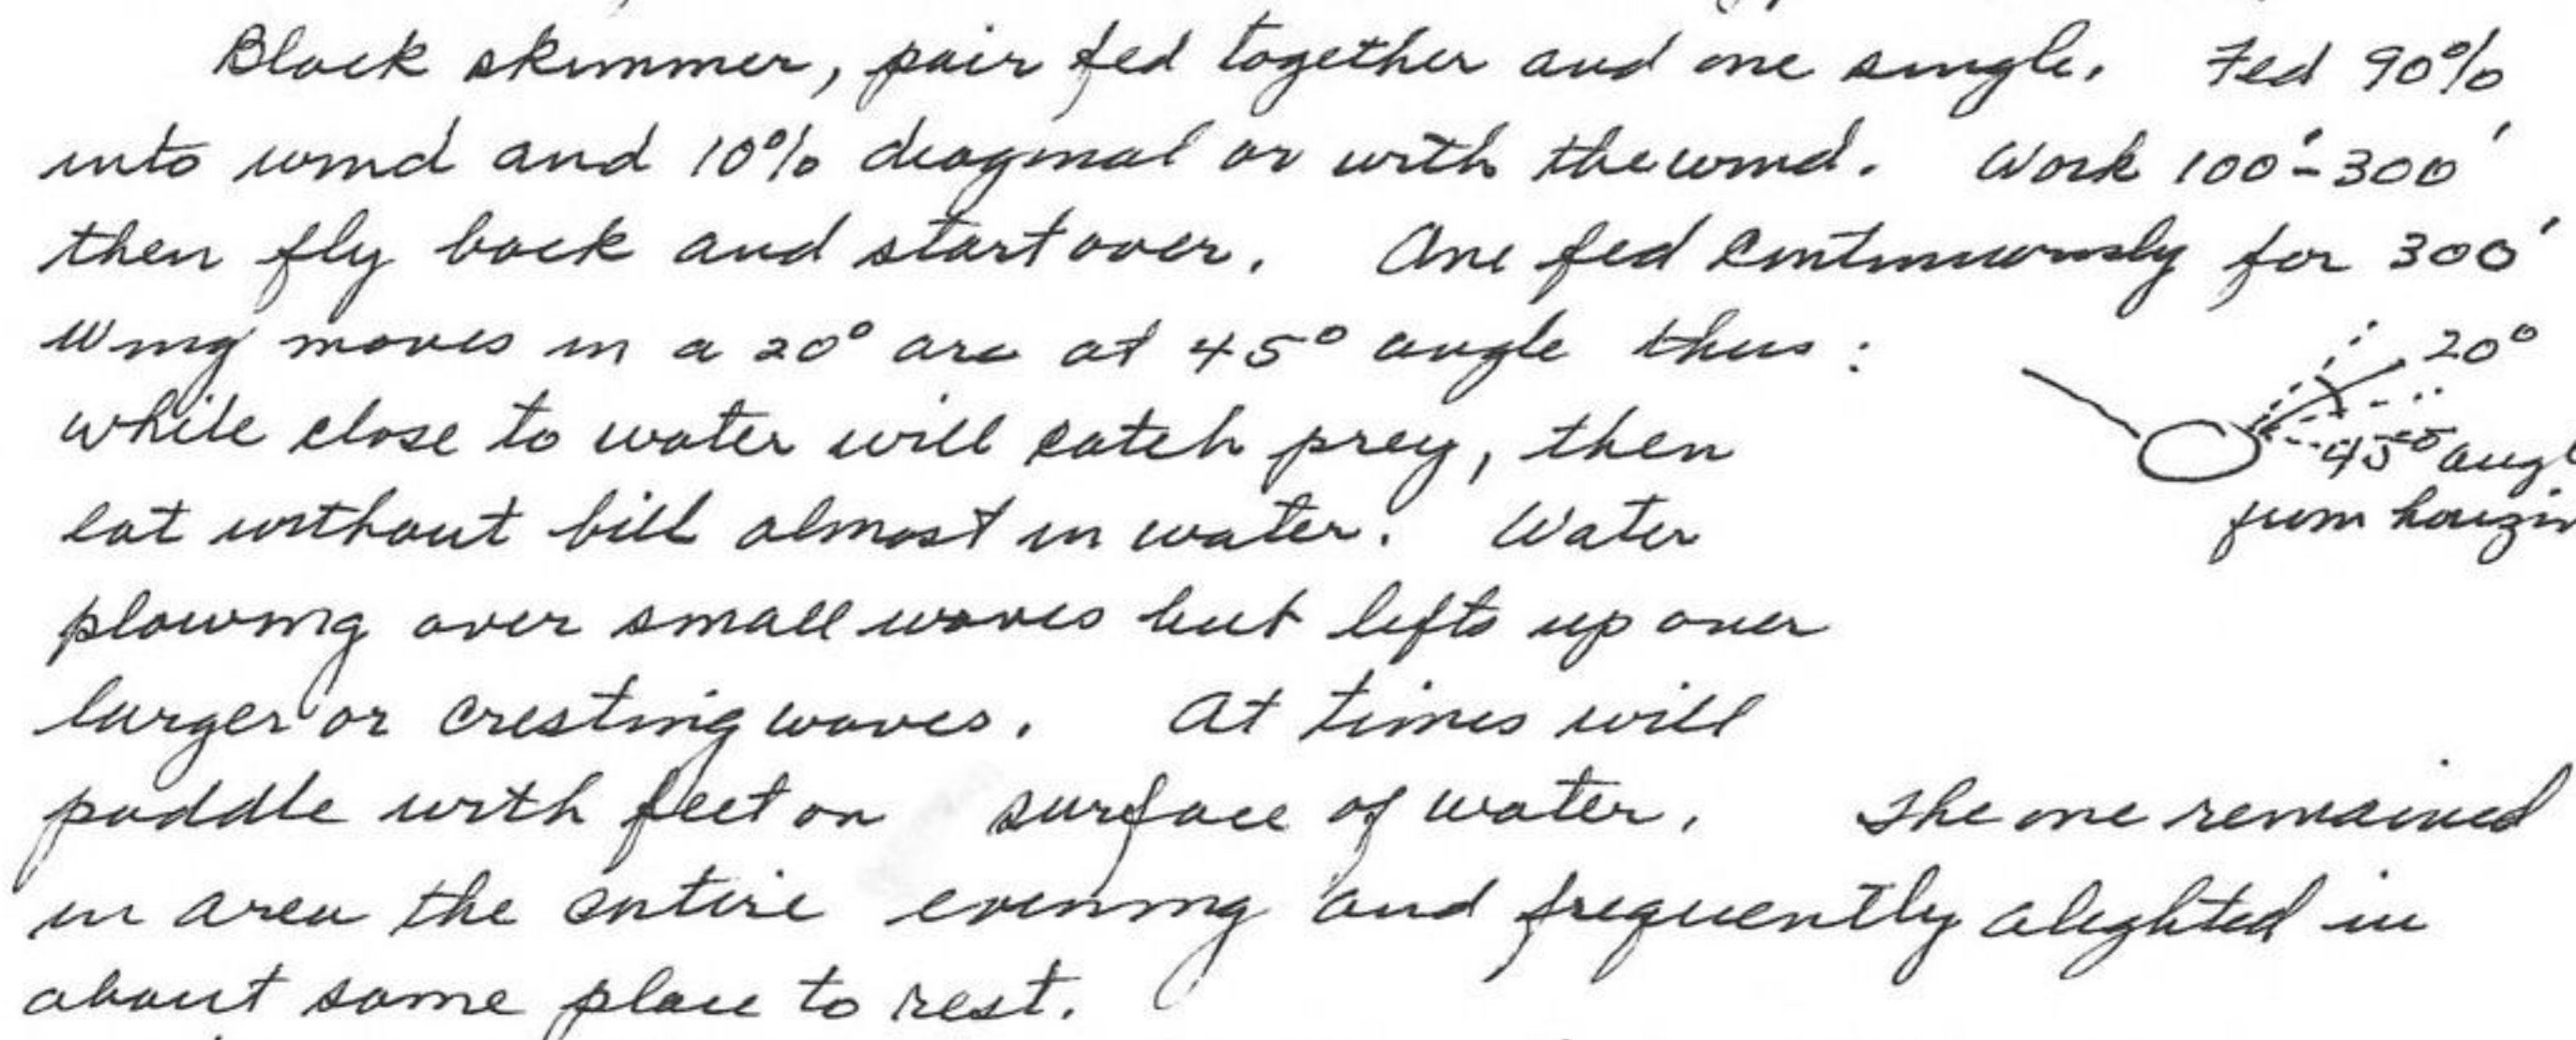 Black skimmer, pair fed together and one single. Fed 90%
into wind and 10% diagonal or with the wind. Work 100'-300'
then fly back and start over. One fed continuously for 300'
Wing moves in a 20° arc at 45° angle thus:
20°
while close to water will catch prey, then
45° angl
eat without bill almost in water. Water
from horizon
plowing over small waves but lifts up over
larger or cresting waves. At times will
paddle with feet on surface of water. The one remained
in area the entire evening and frequently alighted in
about same place to rest.